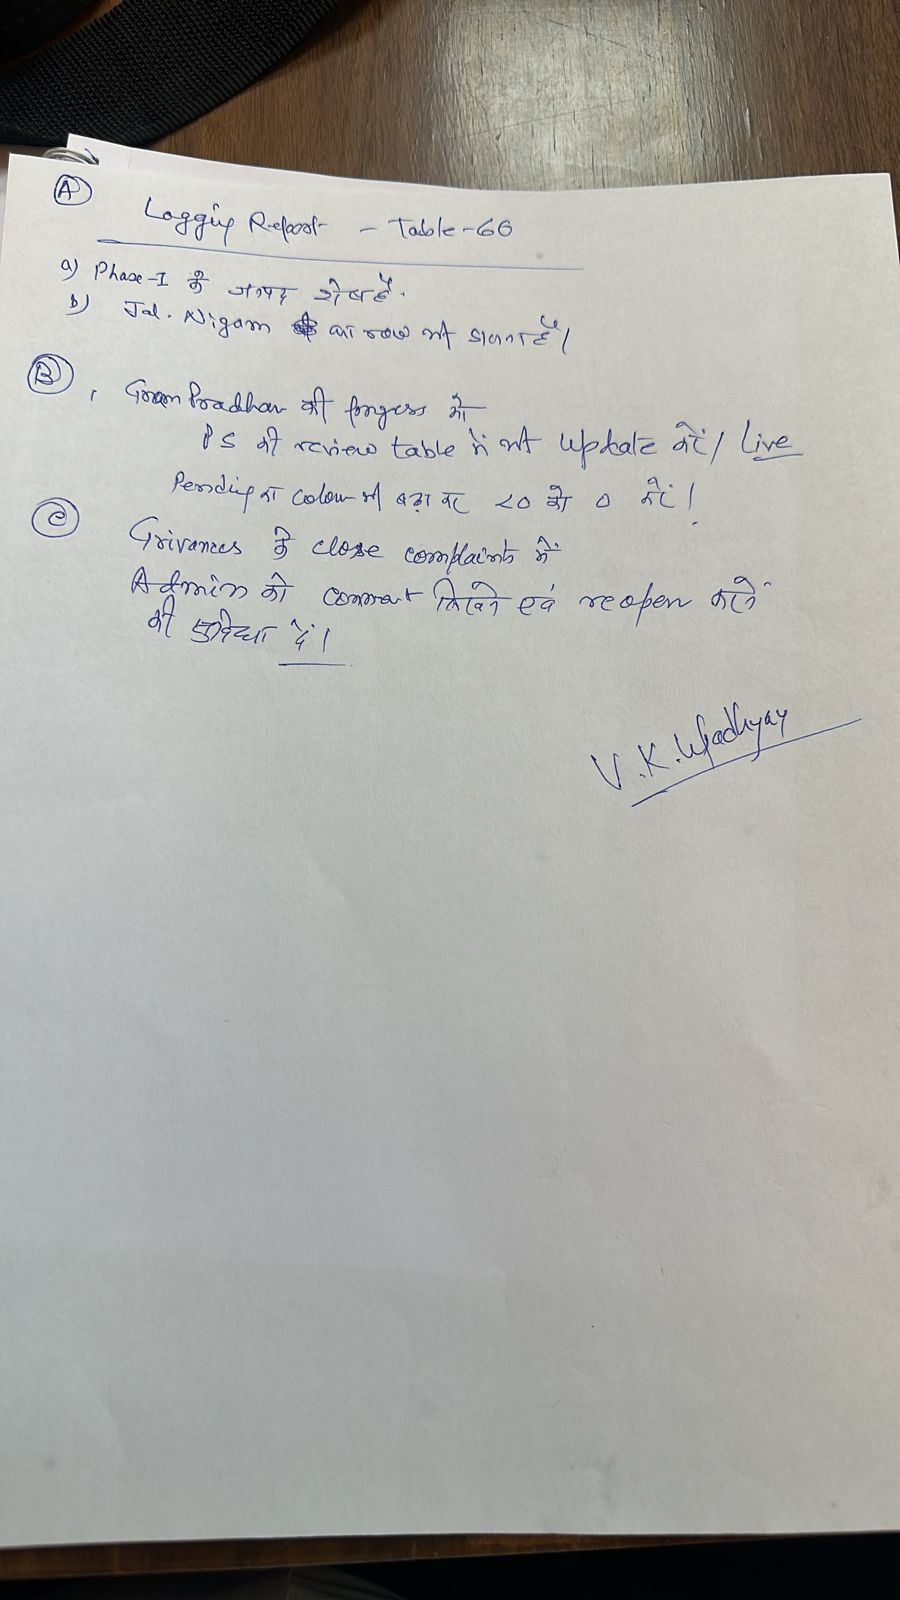 (A) Logging Report - Table-66
a) Phase-I के जनपद शेष हैं.
b) Jal. Nigam का row भी डालना है।
(B), Gram Pradhan की progress को
PS की review table में भी update करें। Live
Pending का colour भी बढ़ा कर <0 को 0 करें।
(C) Grivances के close complaints में
Admin को comment लिखने एवं reopen करने
की सुविधा दें।
V.K.Upadhyay